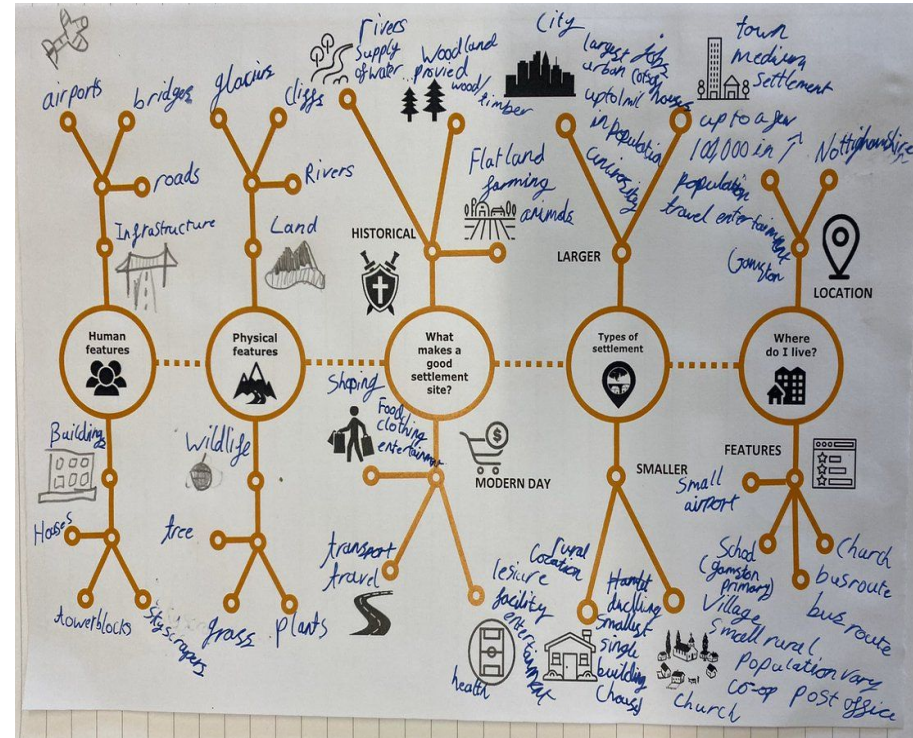 airports
bridges
roads
Infrastructure
Human
features
Buildings
Houses
towerblocks
Skyscrapers
glaciers
cliffs
Rivers
Land
Physical
features
Wildlife
tree
grass
plants
rivers
supply
of water
Woodland
provied
wood/
timber
Flatland
farming
animals
HISTORICAL
What
makes a
good
settlement
site?
Shoping
Food
clothing
entertainment
MODERN DAY
transport
travel
lesiure
facility
entertainment
health
City
largest jobs
urban
upto 1 mil houses
in population
university
town
medium
settlement
up to a few
100,000 in
population
travel entertainment
LARGER
Types of
settlement
SMALLER
rural
location
Hamlet
dwelling
smallest
single
building
(house)
Village
Small rural
Population vary
co-op post office
church
Nottinghamshire
Gamston
LOCATION
Where
do I live?
FEATURES
Small
airport
School
(gamston
primary)
Church
busroute
bus route